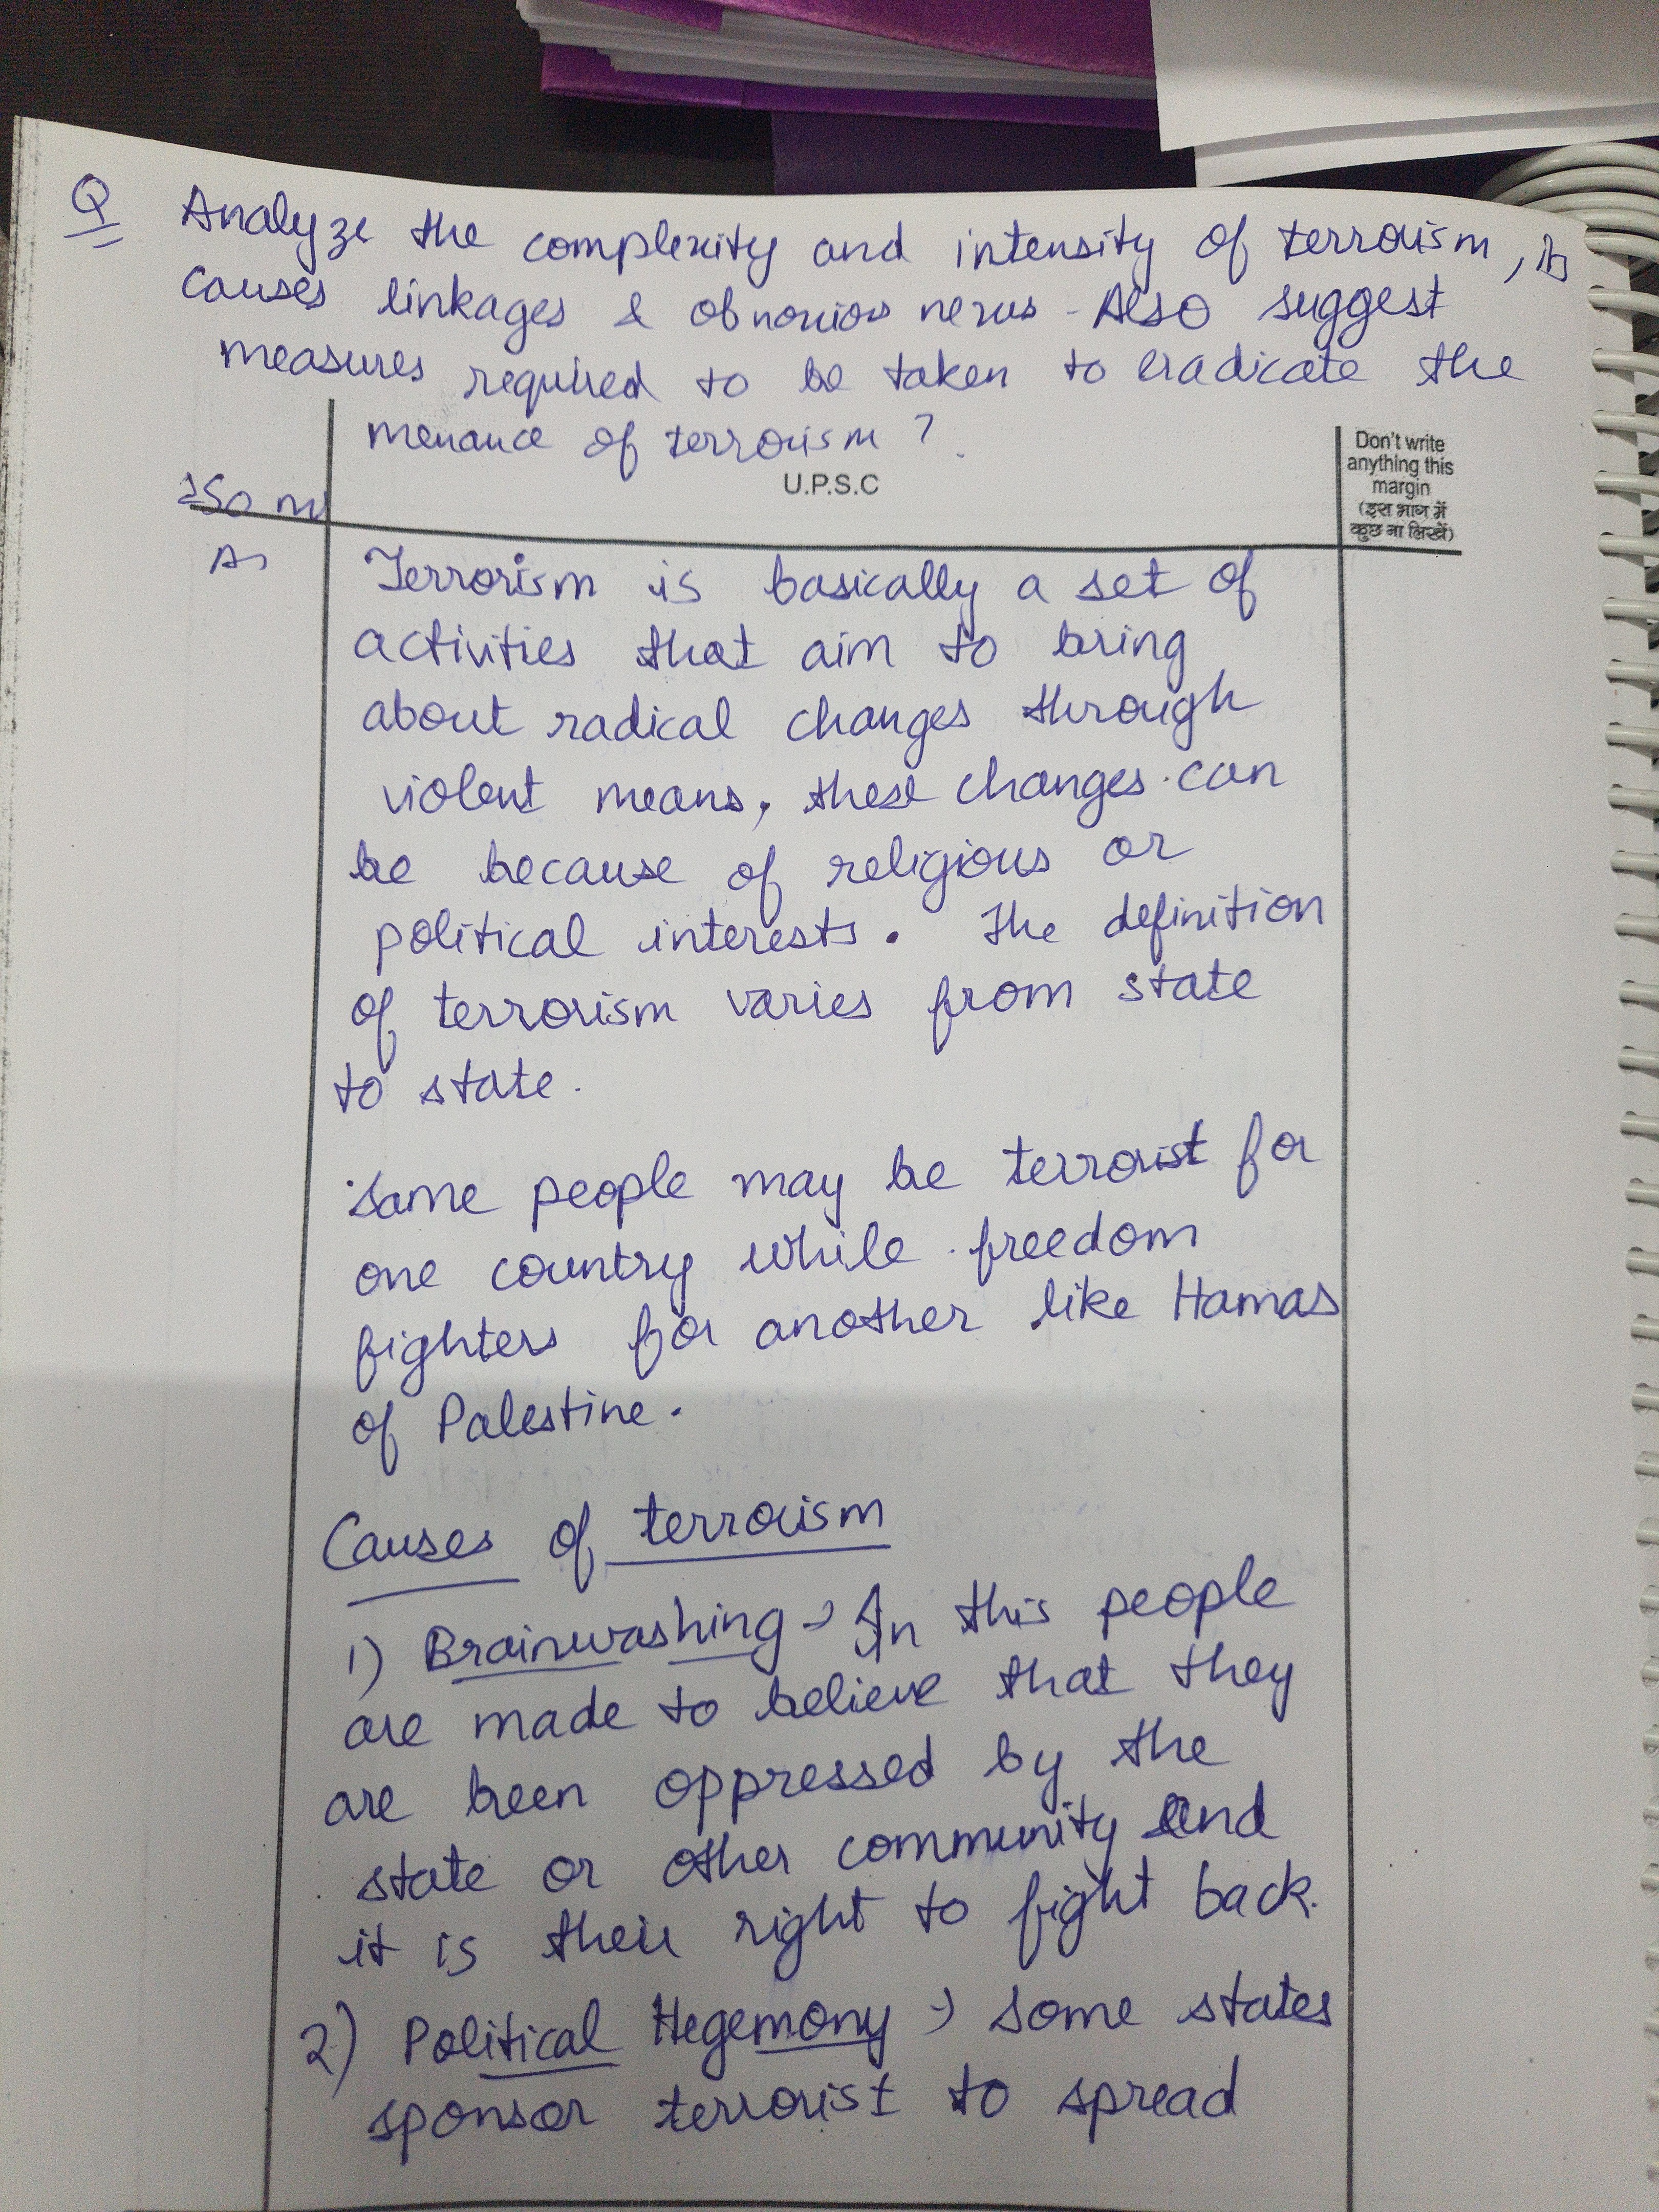 Q Analyze the complexity and intensity of terrorism, its
causes linkages & obnoxios nexus - Also suggest
measures required to be taken to eradicate the
menance of terrorism ?
U.P.S.C
Don't write
anything this
margin
(इस भाग में
कुछ ना लिखें)
250 m
A→ Terrorism is basically a set of
activities that aim to bring
about radical changes through
violent means, these changes can
be because of religious or
political interests. The definition
of terrorism varies from state
to state.
Same people may be terrorist for
one country while freedom
fighters for another like Hamas
of Palestine.
Causes of terrorism
1) Brainwashing → In this people
are made to believe that they
are been oppressed by the
state or other community and
it is their right to fight back.
2) Political Hegemony → Some states
sponsor terrorist to spread